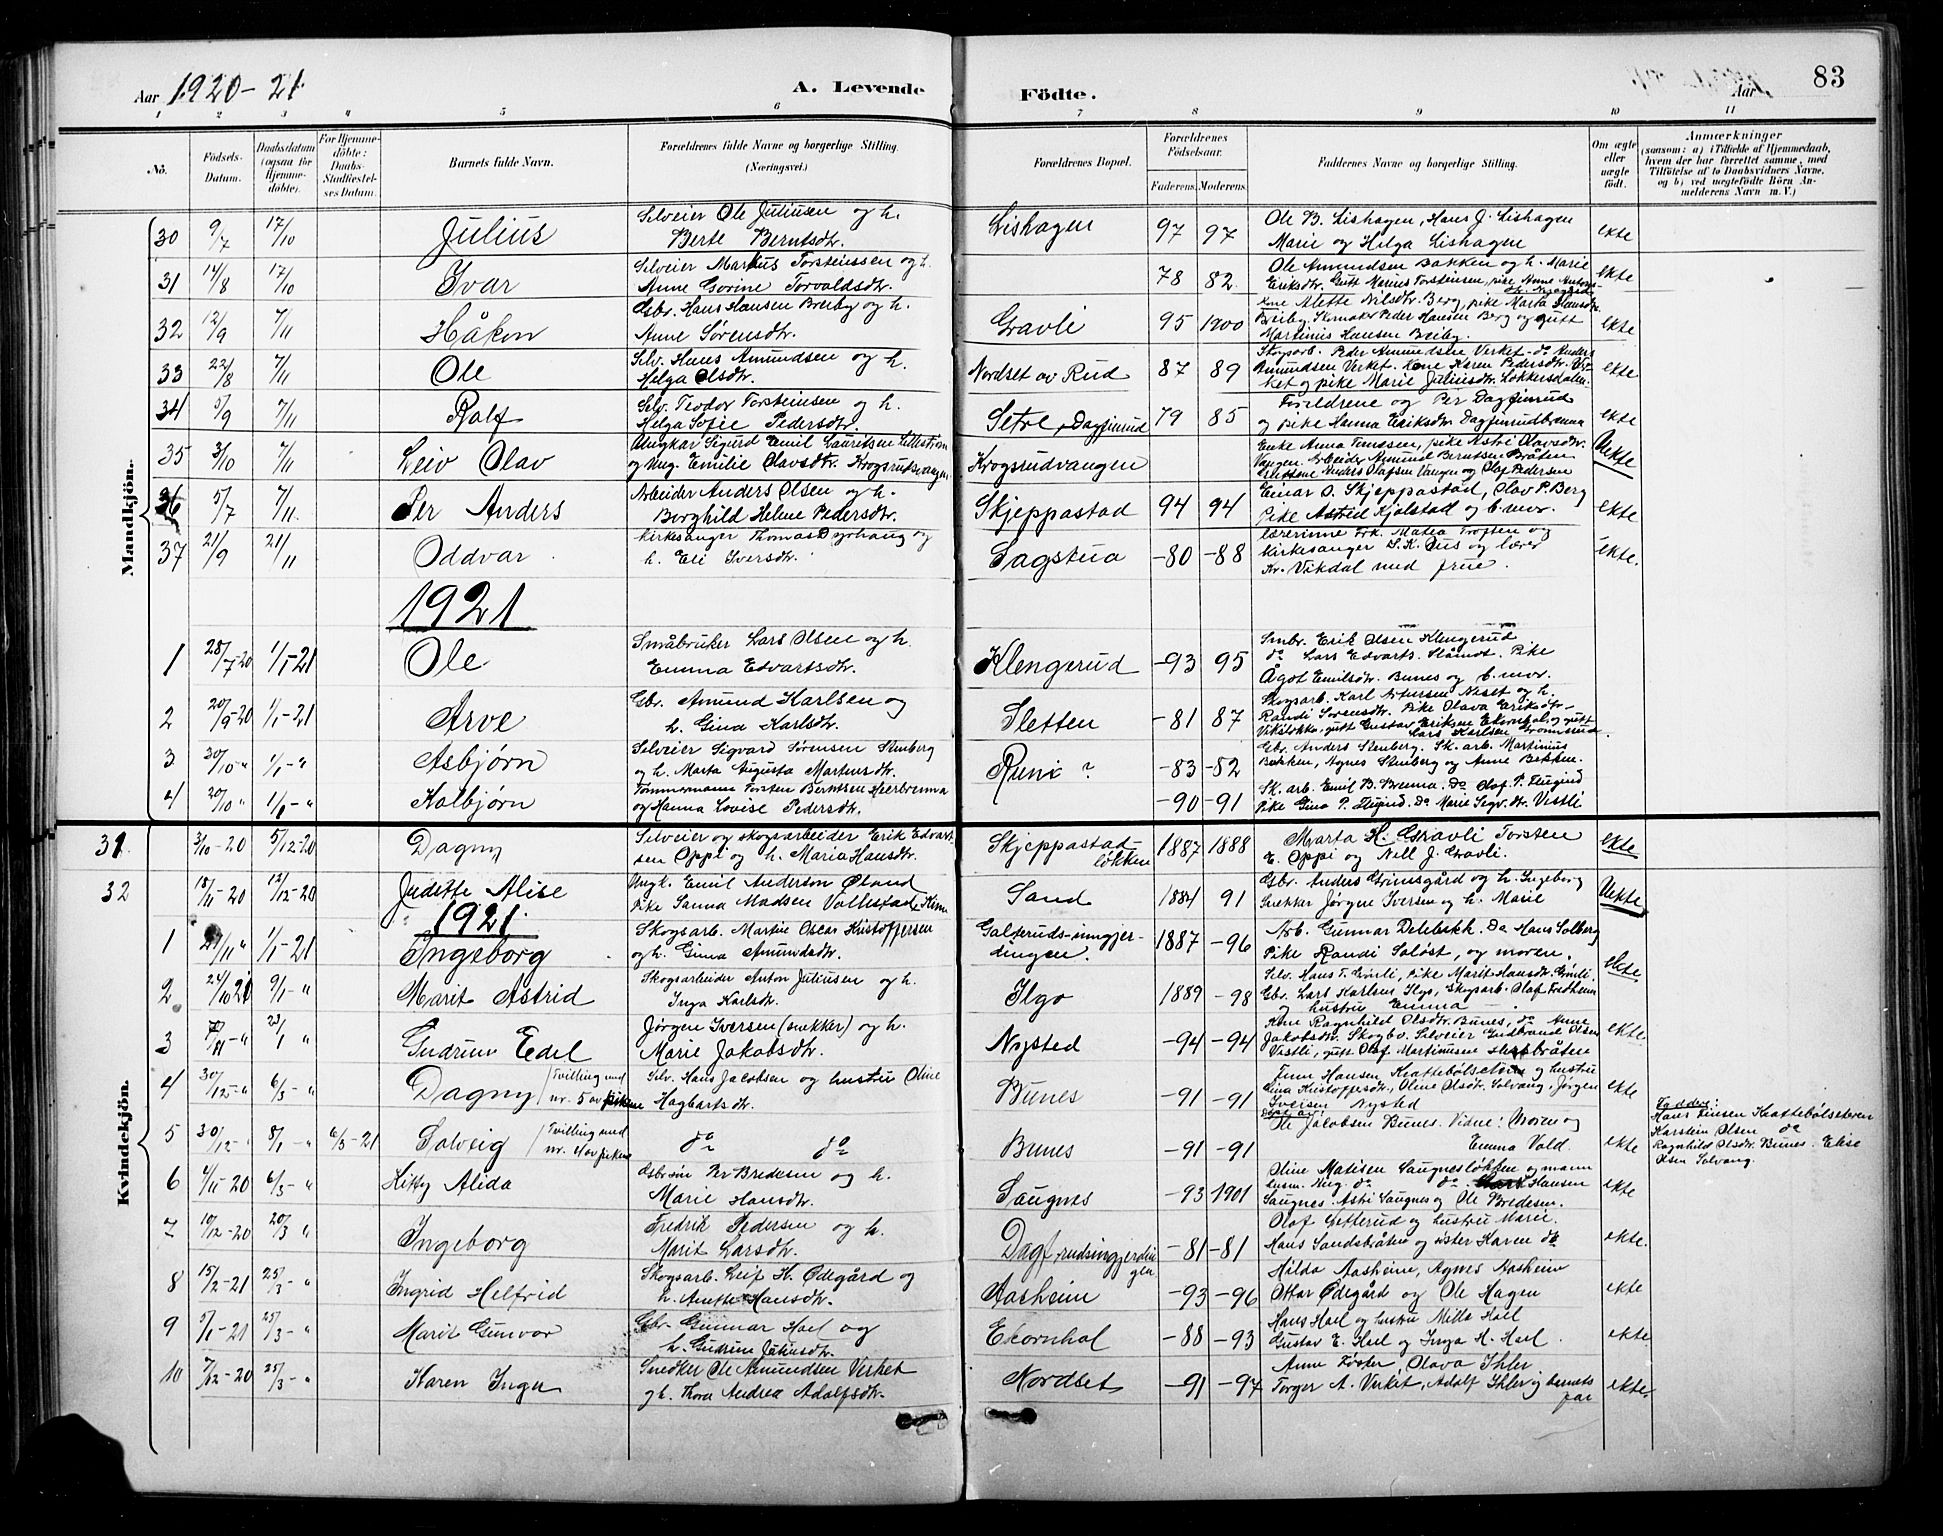 Aar 1920-21. A. Levende Födte. Aar 83
1 2 3 4 5 6 7 8 9 10 11
No. Födsels-Datum. Daabsdatum (ogsaa for Hjemmedöbte). For Hjemmedöbte: Daabs-Stadfæstelses Datum. Barnets fulde Navn. Forældrenes fulde Navne og borgerlige Stilling. (Næringsvei.) Forældrenes Bopæl. Forældrenes Födselsaar. Faderens. Moderens. Faddernes Navne og borgerlige Stilling. Om ægte eller uægte födt. Anmærkninger (saasom: a) i Tilfælde af Hjemmedaab, hvem der har forrettet samme, med Tilföielse af to Daabsvidners Navne, og b) ved uægtefödte Börn Anmelderens Navn m. V.)
Mandkjön.
30 9/7 17/10 Julius Selveier Ole Juliusen og h. Berte Berntsdtr. Lishagen 97 97 Ole B. Lishagen, Hans J. Lishagen Marie og Helga Lishagen ekte
31 14/8 17/10 Ivar Selveier Markus Torsteinssen og h. Anne Gorine Torvaldsdtr. 78 82 Ole Amundsen Bakken og h. Marie Eriksdtr. Gutt Marius Torsteinsen, pike Anne ekte
32 12/9 7/11 Håkon Gbr. Hans Hansen Breiby og h. Anne Sørensdtr. Gravli 95 1900 Kone Alette Nilsdtr. Berg, pike Marta Hansdtr. Breiby. Skomaker Peder Hansen Berg og gutt Martinius Hansen Breiby. ekte
33 22/8 7/11 Ole Selv. Hans Amundsen og h. Helga Olsdtr. Nordset av Rud 87 89 Skogsarb. Peder Amundsen Verket - do Anders Amundsen Verket. Kone Karen Pedersdtr. Verket og pike Marie Juliusdtr. Løkkersdalen. ekte
34 5/9 7/11 Rolf Selv. Teodor Torsteinsen og h. Helga Sofie Pedersdtr. Setre, Dagfinrud 79 85 Foreldrene og Per Dagfinrud og pike Hanna Eriksdtr. Dagfinrudbrenna ekte
35 3/10 7/11 Leiv Olav Ungkar Sigurd Emil Lauritsen Lillestrøm og Ung. Emilie Olavsdtr. Krogsrudvangen Krogsrudvangen Enke Anna Tomssen, pike Astri Olavsdtr. Vangen. Arbeider Amund Berntsen Bråten Anders Olafsen Vangen og Olaf Pedersen Uekte
36 5/7 7/11. Per Anders Arbeider Anders Olsen og h. Borghild Helene Pedersdtr. Skjeppastad 94 94 Einar O. Skjeppastad, Olav P. Berg Pike Astrid Kjølstad og b. mor. ekte
37 21/9 21/11 Oddvar Kirkesanger Thomas Dyrhaug og h. Eli Iversdtr. Sagstua -80 -88 lærerinne Frk. Matea Troften og Kirkesanger S. K. Hus og lærer Kr. Vikdal med frue. ekte.
1921
1 28/7-20 1/1-21 Ole Småbruker Lars Olsen og h. Emma Edvartsdtr. Klengerud -93 95 Smbr. Erik Olsen Klengerud do Lars Edvarts. Slåmot. Pike Ågot Emilsdtr. Bunes og b. mor.
2 20/9-20 1/1-21 Arve Gbr. Amund Karlsen og h. Gina Karlsdtr. Sletten -81 87 Skogsarb. Karl Petersen Neset og h. Randi Sørensdtr. Pike Olava Eriksdtr. Viksløkka, gutt Gustav Eriksen Ekornhol og gutt Lars Karlsen Strømsrud.
3 30/10-" 1/1-" Asbjørn Selveier Sigvard Sørensen Stenberg og h. Marta Augusta Martinsdtr. Runi ? -83 -82 Gbr. Anders Stenberg. Sk. arb. Martinius Bekken, Agnes Stenberg og Anne Bekken.
4 20/10 " 1/1-" Kolbjørn Tømmermann Torsten Berntsen Meierbrenna og Hanna Lovise Pedersdtr. -90 -91 Sk. arb. Emil B. Brenna. Do Olaf P. Flugind Pike Gina P. Flugind. Do Marie Sigv. dtr. Vestli
Kvindekjön.
31. 3/10-20 5/12-20 Dagny Selveier og skogsarbeider Erik Edvartsen Oppi og h. Maria Hansdtr. Skjeppastad-løkken 1887 1888 Marta H. Gravli Torsten E. Oppi og Nell J. Gravli. ekte
32 18/11-20 12/12-20 Judette Alise Ungk. Emil Anderson Øland Pike Sanna Madsen Vollestad Sand 1884 91 Gbr. Anders Grimsgård og h. Ingeborg Snekker Jørgen Iversen og h. Marie Uekte
1921.
1 /11 " 1/1-21 Ingeborg Skogsarb. Martin Oscar Kristoffersen og h. Gina Amundsdtr. Galterudsinngjerdingen. 1887 -96 Arb. Gunnar Delebekk. Do Hans Solberg Pike Randi Soløst, og moren. ekte
2 24/10 9/1-" Marit Astrid Skogsarbeider Anton Juliusen og h. Inga Karlsdtr. Ilgo 1889 -98 Selv. Hans T. Grinli, Pike Marit Hansdtr. Grinli. Gbr. Lars Karlsen Ilgo, Skogsarb. Olaf Fredheim og hustru Emma
3 /11-" 23/1 " Gudrun Edel Jørgen Iversen (snekker) og h. Marie Jakobsdtr. Nysted -94 -94 Kone Ragnhild Olsdtr. Bunes, do Anne Jakobsdtr. Skogbo. Selveier Gudbrand Olsen Vestli, gutt Olaf Martinusen ekte.
4 30/12-" 6/3-" Dagny (Tvilling med nr. 5 av pikene Selv. Hans Jacobsen og hustru Oline Hagbartsdtr. Bunes -91 -91 Finn Hansen Krattebølseteren og hustru Gina Kristoffersdtr., Oline Olsdtr. Solvang, Jørgen Iversen Nysted ekte
5 30/12-" 8/1-" 6/3-21 Solveig (Tvilling med nr. 4 av pikene do do Bunes -91 -91 Døpt av: Ole Jacobsen Bunes. Vidne: Moren og Emma Vold. ekte Faddere: Hans Finsen Krattebølseteren Karstein Olsen do Ragnhild Olsdtr. Bunes. Elise Olsen Solvang.
6 4/11-20 6/3-" Kitty Alida Gbr.søn Per Bredesen og h. Marie Hansdtr. Saugnes -93 1901 Oline Matisen Saugnesløkken og mann Hansen Saugnes. Asti Saugnes og Ole Bredesen. ekte
7 10/12-20 20/3 " Ingeborg Fredrik Pedersen og h. Marit Larsdtr. Dagf.rudsingjerdingen -81 -81 Olaf Setterud og hustru Marie. Hans Sandsbråten og søster Karen do ekte.
8 15/2-21 25/3-" Ingrid Helfrid Skogsarb. Leif H. Ødegård og h. Anette Hansdtr. Aasheim -93 -96 Hilda Aasheim, Agnes Aasheim Ottar Ødegård og Ole Hagen ekte
9 5/1-21 25/3-" Marit Gunvor Gbr. Gunnar Hoel og h. Gudrun Juliusdtr. Ekornhol -88 -93 Hans Hoel og hustru Milla Hoel Gustav E. Hoel og Inga H. Hoel. ekte.
10 7/12-20 25/3-" Karen Inger Snedker Ole Amundsen Verket og h. Thora Andrea Adolfsdtr. Nordset -91 -97 Anne Foster, Olava Ihler, Torger A. Verket, Adolf Ihler og barnets far ekte.